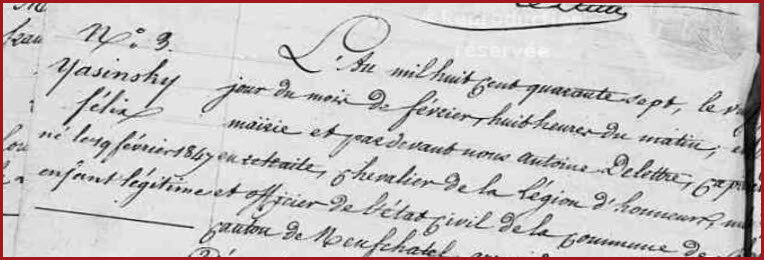 Reproduction
réservée
N.° 3.
Yasinsky
félix
né le 19 février 1847
enfant légitime
L'An mil huit cent quarante sept, le
jour du mois de février, huit heures du matin; en
mairie et pardevant nous antoine Delottre, Capi
en retraite, chevalier de la légion d'honneur, m
et officier de l'état civil de la commune de
canton de Neufchatel